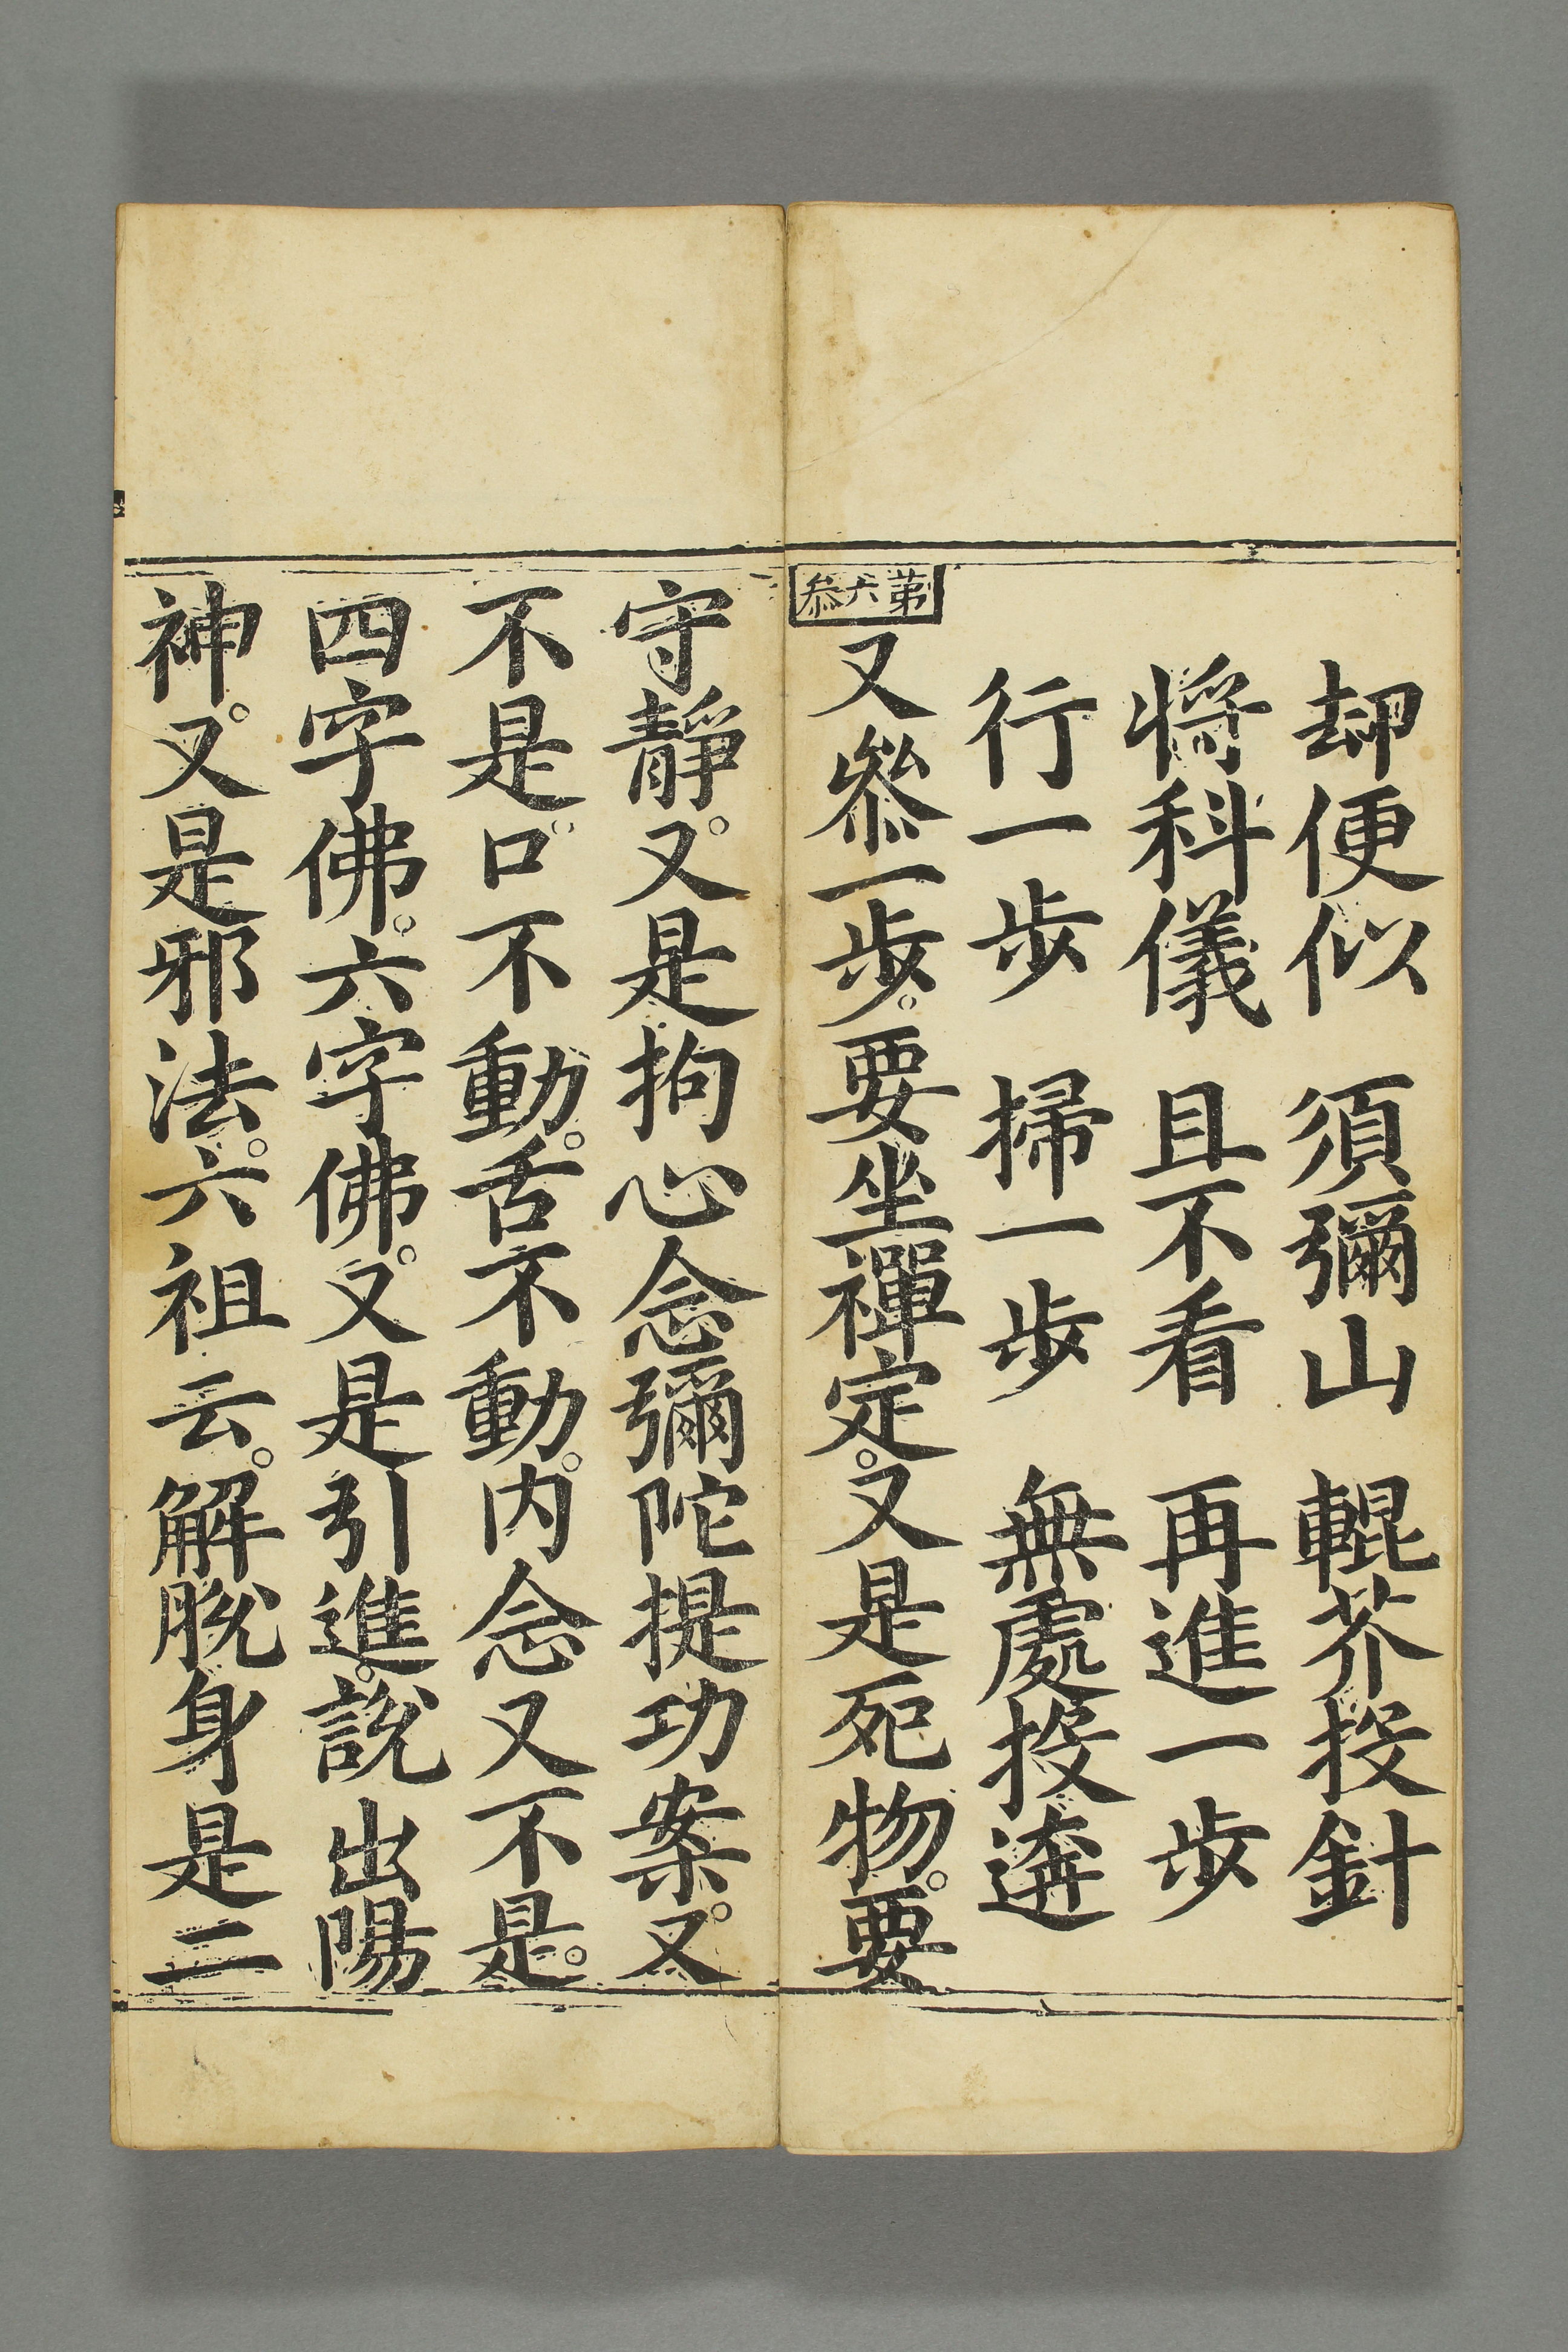 却便似　須彌山　輥芥投針
將科儀　且不看　再進一步
行一步　掃一步　無處投遶
第六叅
又叅一步。要坐禪定。又是死物。要
守靜。又是拘心念彌陀提功案。又
不是口不動。舌不動。内念又不是。
四字佛。六字佛。又是引進。說出陽
神。又是邪法。六祖云。解脫身是二